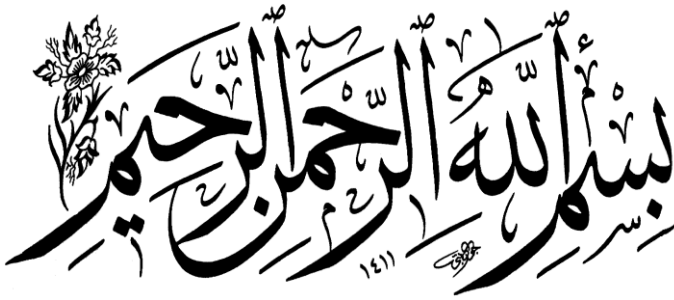 بِسْمِ اللَّهِ الرَّحْمَنِ الرَّحِيمِ
١٤١١